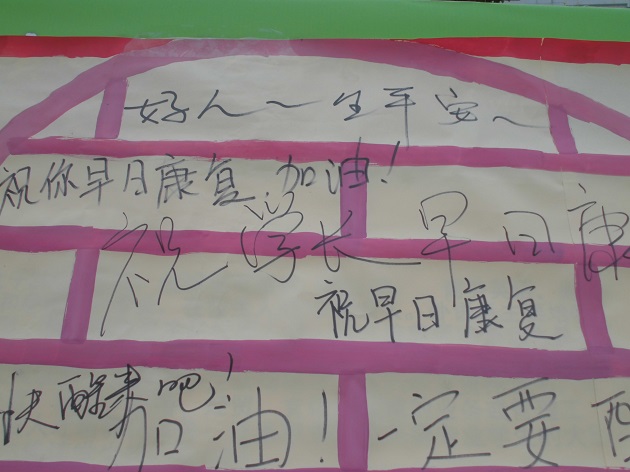 好人一生平安~
祝你早日康复,加油!
祝学长早日康
祝早日康复
快醒来吧!
加油!一定要